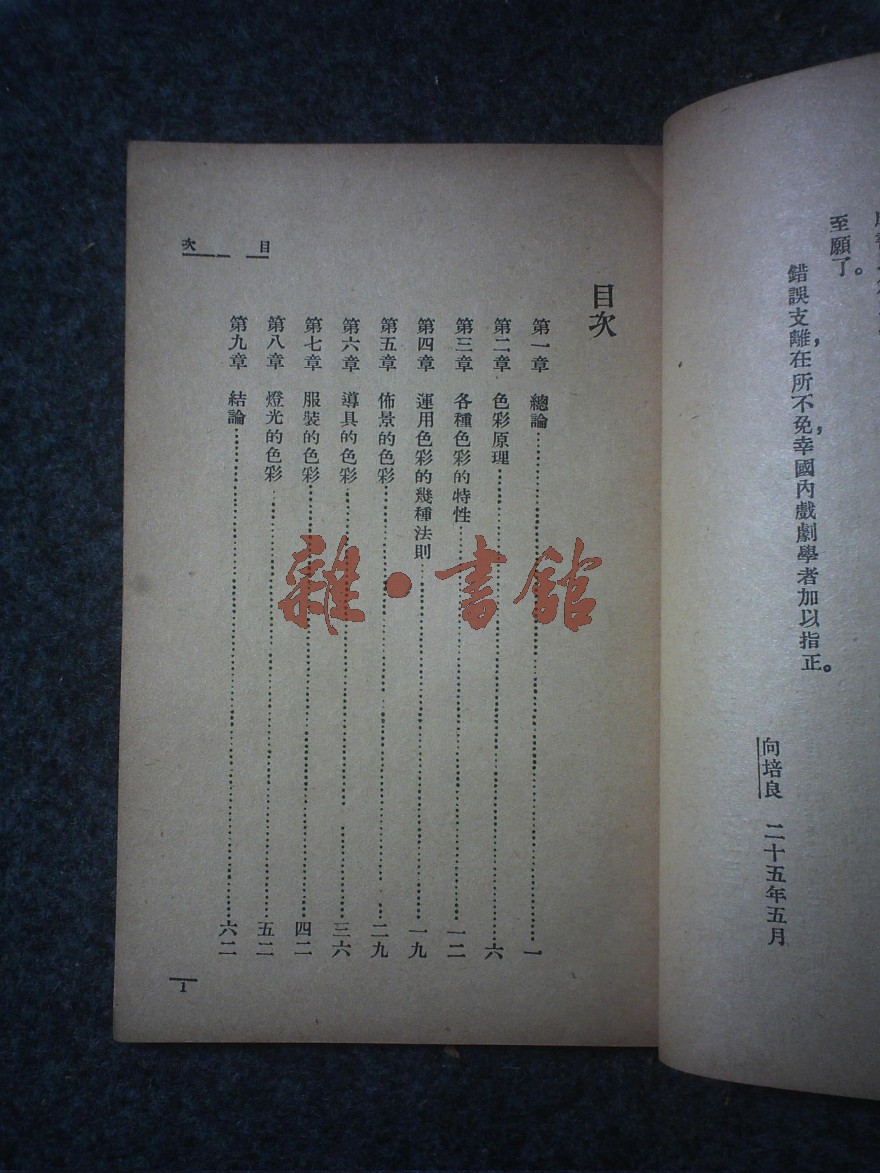 至願了。
錯誤支離，在所不免，幸國內戲劇學者加以指正。
向培良　二十五年五月
目次
目次
第一章　總論……一
第二章　色彩原理……六
第三章　各種色彩的特性……一二
第四章　運用色彩的幾種法則……一九
第五章　佈景的色彩……二九
第六章　導具的色彩……三六
第七章　服裝的色彩……四二
第八章　燈光的色彩……五二
第九章　結論……六二
1
雜·書館